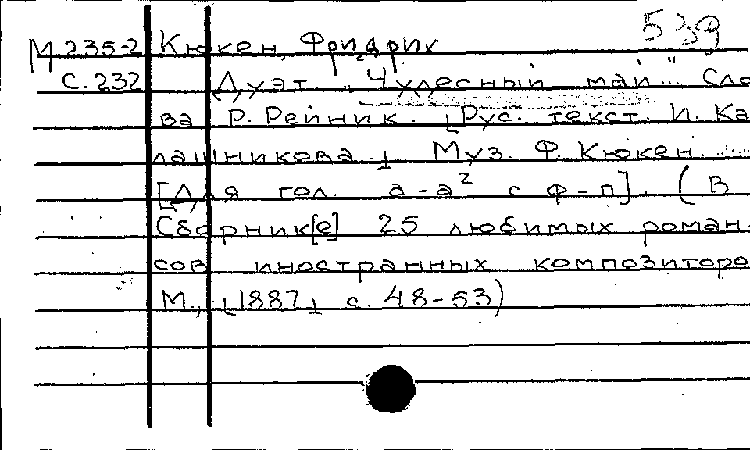 539
М 235-2 Кюкен, Фридрих
С. 232 Дуэт. „Чудесный май" Сло
ва Р. Рейник. [Рус. текст. И. Ка
лашникова] Муз. Ф. Кюкен.
[Для гол. a-a² с ф-п]. (В
Сборник[е] 25 любимых роман-
сов иностранных композиторо
М., [1887] с. 48-53)